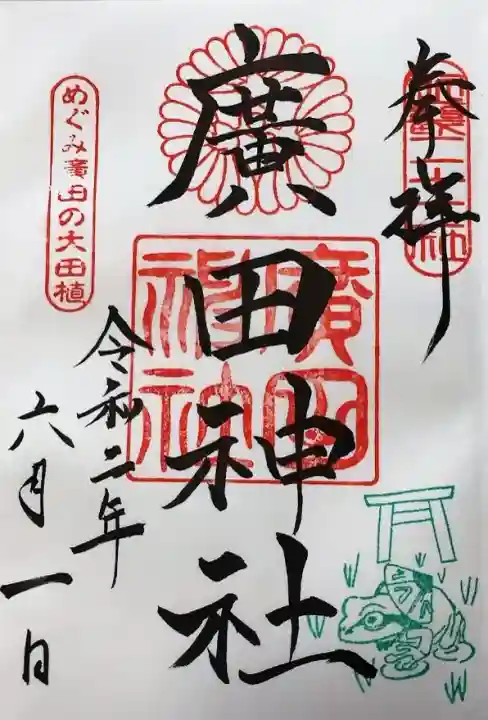 奉拝
廣田神社
廣田
神社
めぐみ廣田の大田植
令和二年
六月一日